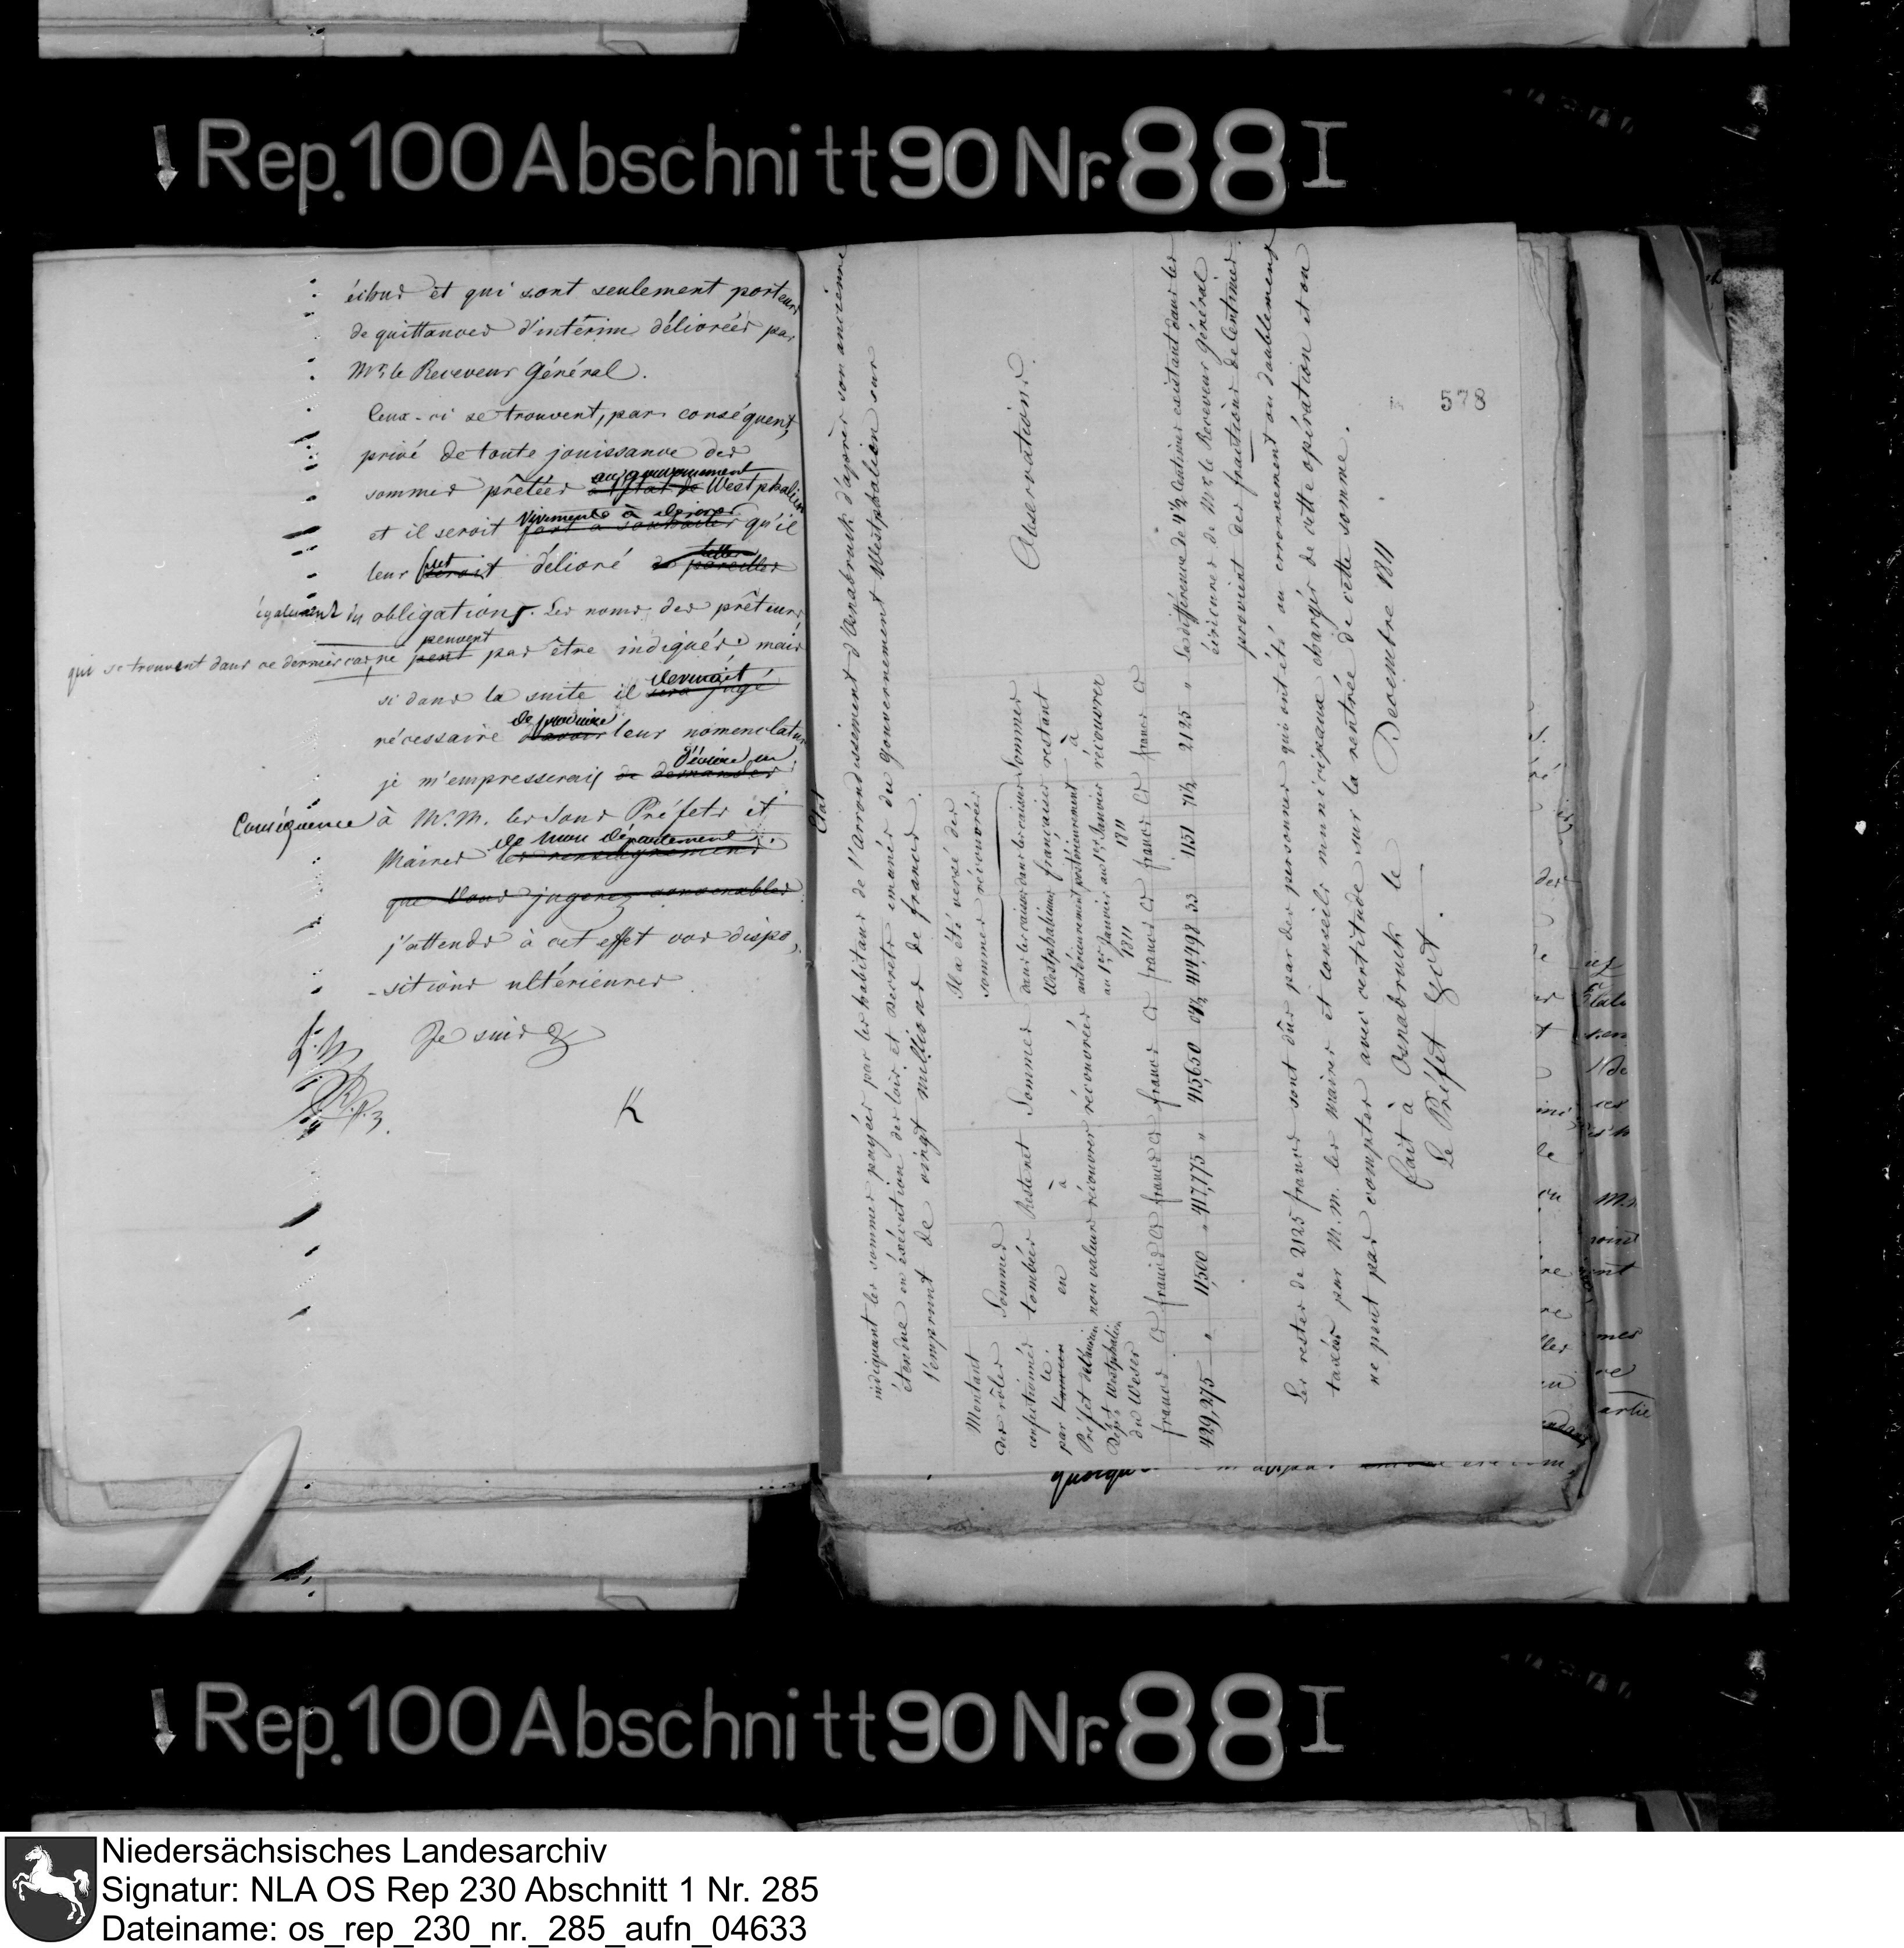 Rep. 100 Abschnitt 90 Nr. 88 I
échus et qui sont seulement porteurs
de quittances d'intérim délivrées par
Mr. le Receveur Général.
Ceux-ci se trouvent, par conséquent,
privé de toute jouissance des
au gouvernement
sommes prêtées a l'état de Westphalien
vivement à desirer
et il seroit fort a souhaiter qu'il
fut telles
leur seroit délivré de pareilles
également des obligations. Les noms des prêteurs,
peuvent
qui se trouvent dans ce dernier cas, ne peut pas être indiqués mais
devenait
si dans la suite il sera jugé
de produire
nécessaire d'avoir leur nomenclature
d'écrire en
je m'empresserais de demander
Conséquence à M.M. les Sous Préfets et
de mon département.
Maires les renseignemens
que vous jugerez convenables
j'attends à cet effet vos dispo,
-sitions ultérieures.
Je suis &
K
578
Etat
indiquant les sommes payées par les habitans de l'arrondissement d'Osnabruck d'après son ancienne
étendue en exécution des lois et decrets émanés du gouvernement Westphalien sur
l'emprunt de vingt millions de francs.
Montant
des rôles
confectionnés
par l'ancien le
Préfet de l'ancien
Dépt. Westphalien
du Weser
Sommes
tombées
en
non valeurs
Restent
à
récouvrer
Sommes
récouvrées
Il a été versé des
sommes récouvrées
dans les caisses
Westphaliennes
antérieurement
au 1er Janvier
1811
dans les caisses
françaises
postérieurement
au 1er Janvier
1811
Sommes
restant
à
récouvrer
Observations.
francs Cs francs Cs francs Cs francs Cs francs Cs francs Cs francs Cs
429,275 " 11,500 " 417,775 " 415,650 04½ 414,498 33 1151 71½ 2125 "
La différence de 4½ Centimes existant dans les
écritures de Mr. le Receveur Général
provient des fractions de Centimes.
Les restes de 2125 francs sont dûs par des personnes qui ont été ou erronnement ou doublement
taxées par M.M. les Maires et conseils municipaux chargés de cette opération et on
ne peut pas compter avec certitude sur la rentrée de cette somme.
fait à Osnabruck le Decembre 1811.
Le Préfet
Rep. 100 Abschnitt 90 Nr. 88 I
Niedersächsisches Landesarchiv
Signatur: NLA OS Rep 230 Abschnitt 1 Nr. 285
Dateiname: os_rep_230_nr._285_aufn_04633